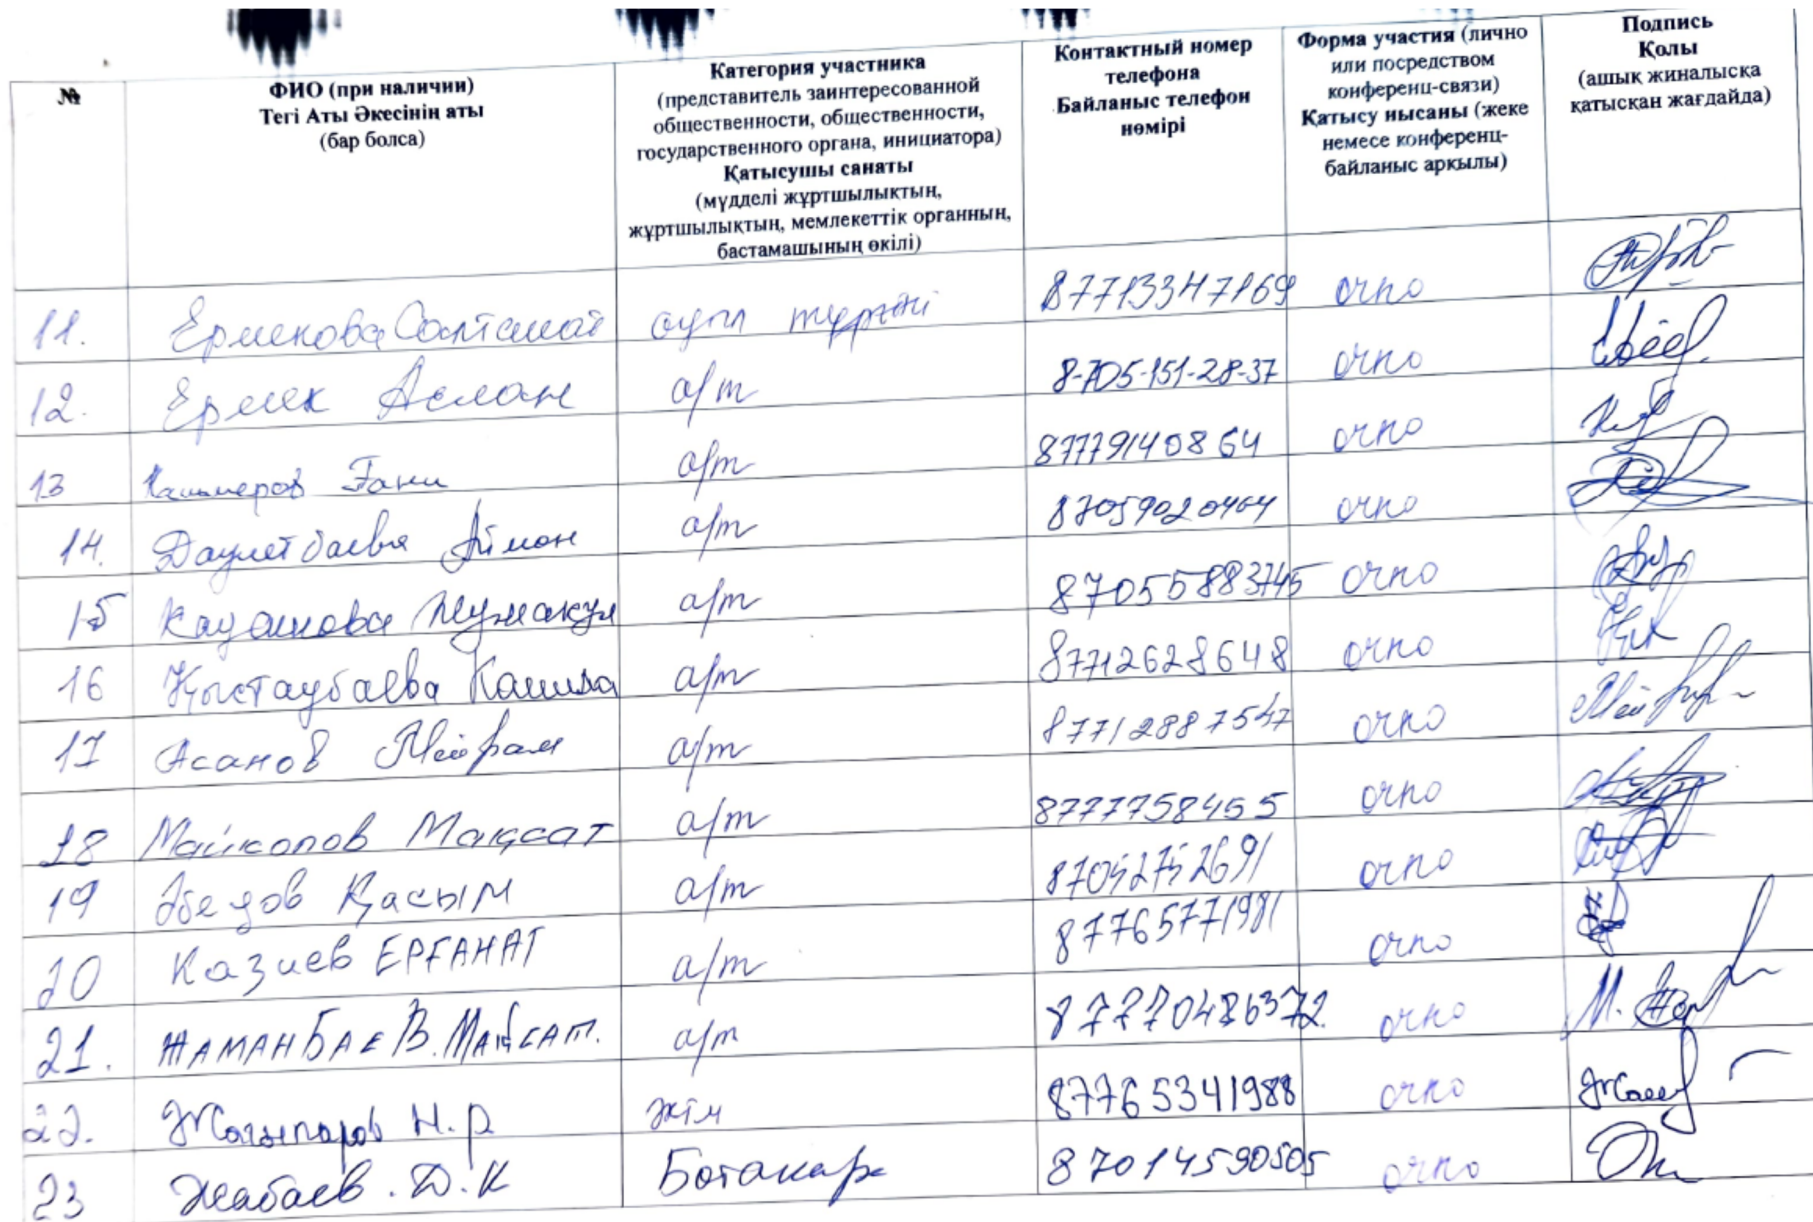 №
ФИО (при наличии)
Тегі Аты Әкесінің аты
(бар болса)
Категория участника
(представитель заинтересованной
общественности, общественности,
государственного органа, инициатора)
Қатысушы санаты
(мүдделі жұртшылықтың,
жұртшылықтың, мемлекеттік органның,
бастамашының өкілі)
Контактный номер
телефона
Байланыс телефон
нөмірі
Форма участия (лично
или посредством
конференц-связи)
Қатысу нысаны (жеке
немесе конференц-
байланыс арқылы)
Подпись
Қолы
(ашық жиналысқа
қатысқан жағдайда)
11. Ермекова Салтанат ауыл тұрғыны 87713347169 очно
12. Ермек Аслан а/т 8-705-151-28-37 очно
13 Гани а/т 87779140864 очно
14. Даулетбаева а/т 87059020464 очно
15 а/т 87055883745 очно
16 Қыстаубаева а/т 87712628648 очно
17 Асанов Мейрам а/т 87712887547 очно
18 Майкопов Мақсат а/т 8777758455 очно
19 Қасым а/т очно
20 Казиев ЕРҒАНАТ а/т 87765771981 очно
21. ЖАМАНБАЕВ. а/т 87770486372 очно
22. Жагыпаров Н.р әкім 87765341988 очно
23 Жабаев. Д.К 87014590505 очно